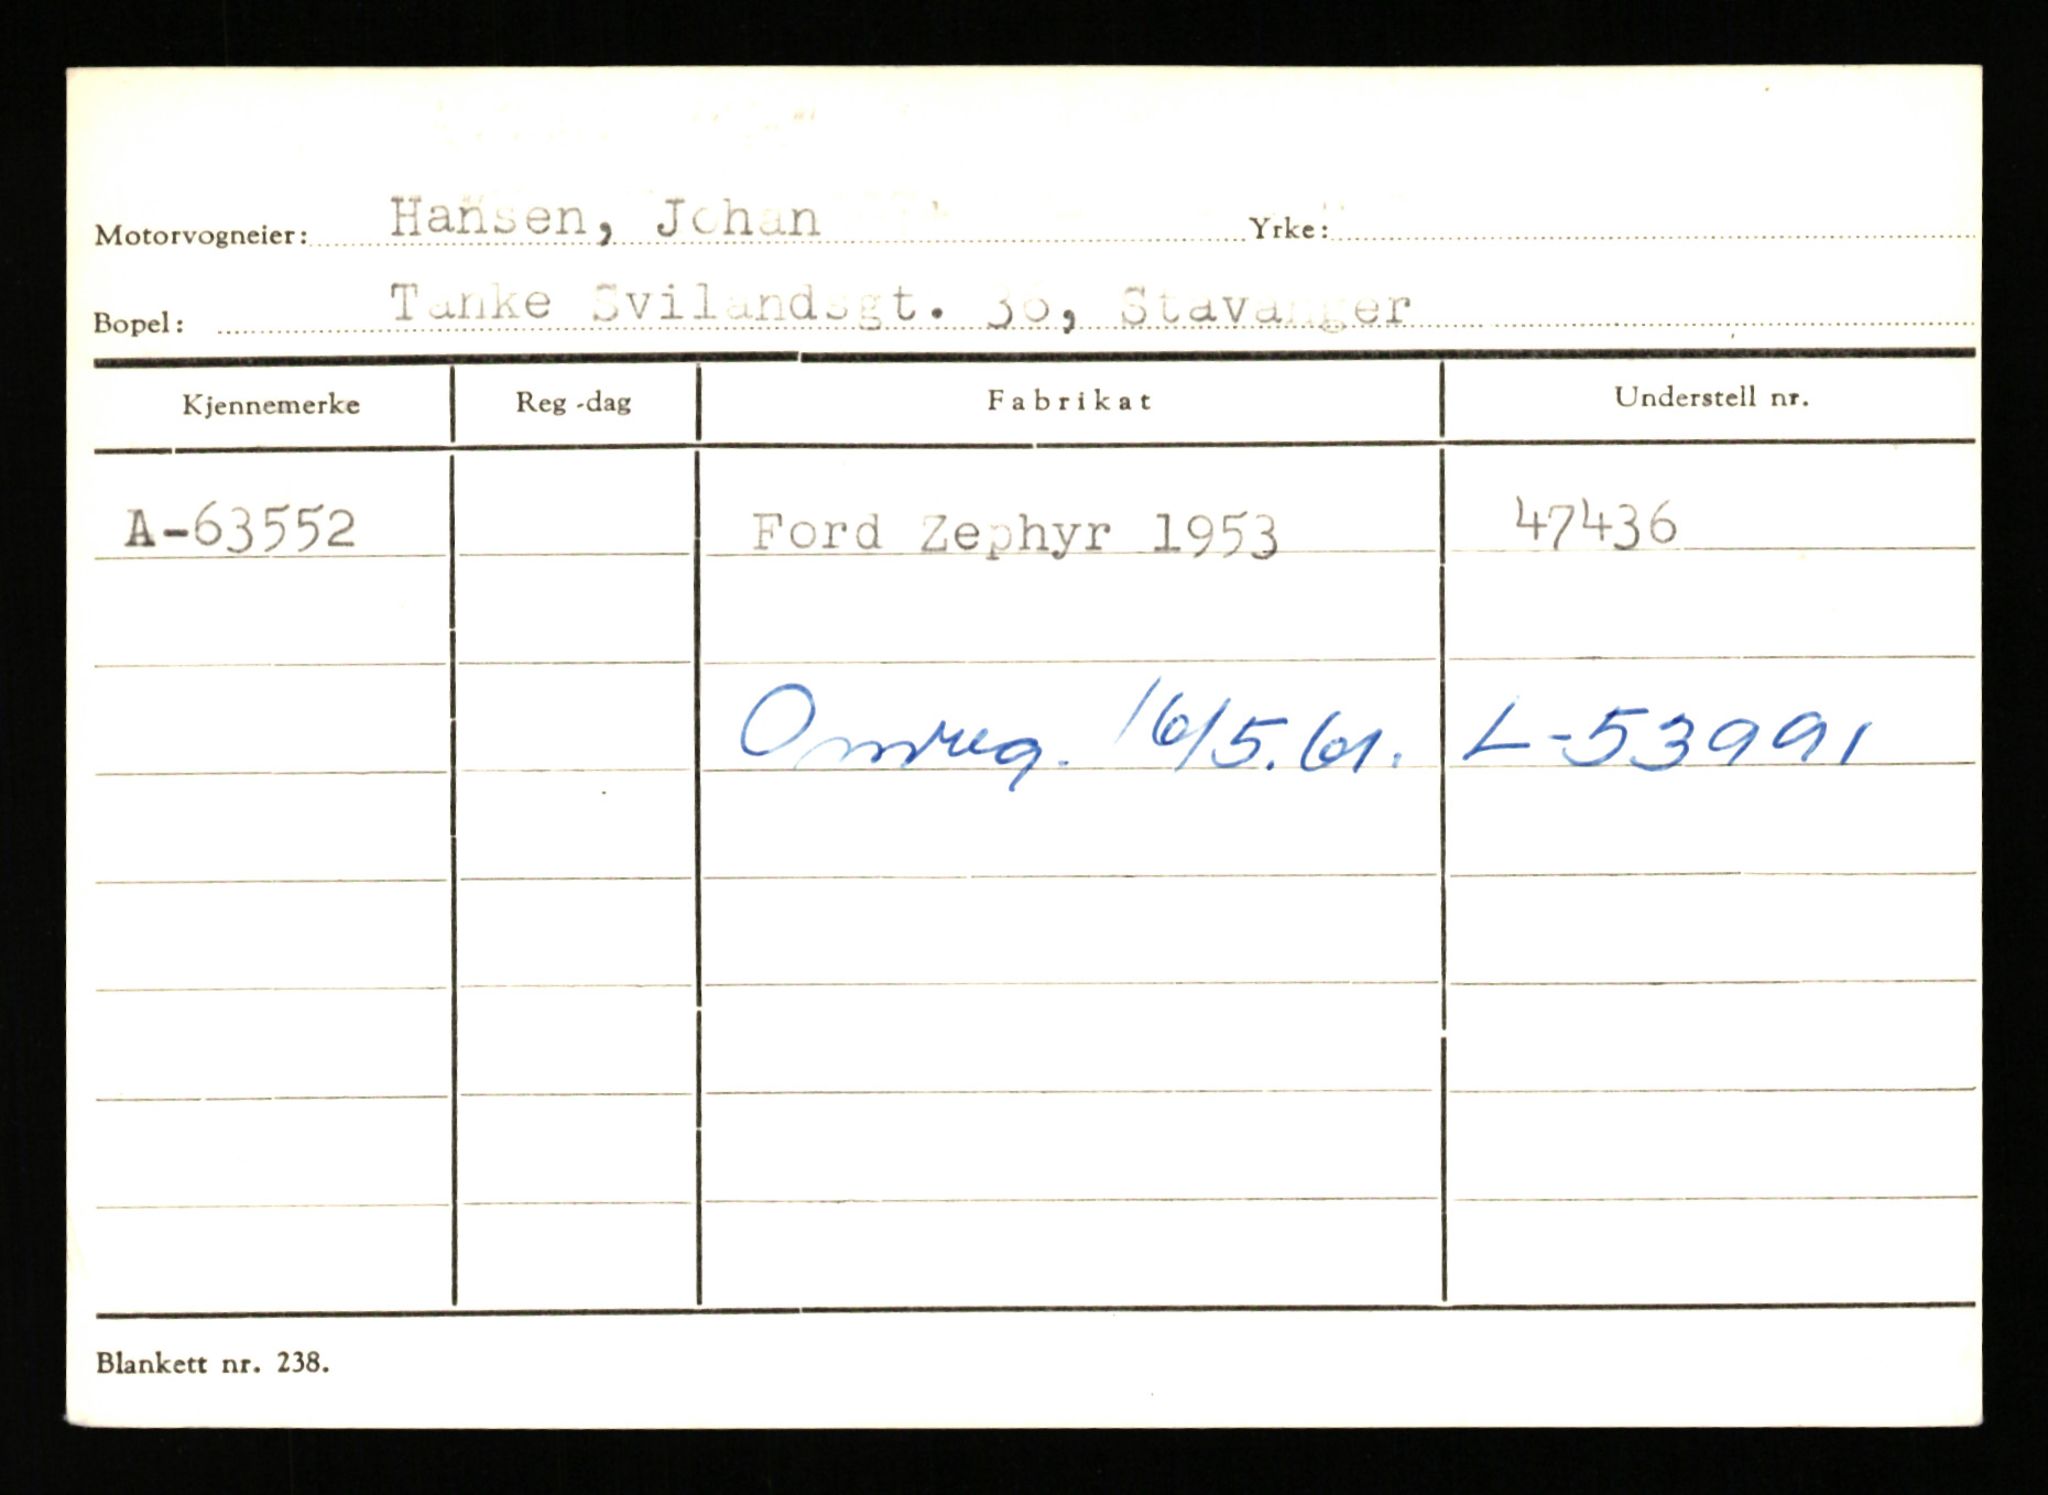 Motorvogneier: Hansen, Johan Yrke:
Bopel: Tanke Svilandsgt. 36, Stavanger
Kjennemerke Reg-dag Fabrikat Understell nr.
A-63552 Ford Zephyr 1953 47436
Omreg. 16/5.61. L-53991
Blankett nr. 238.